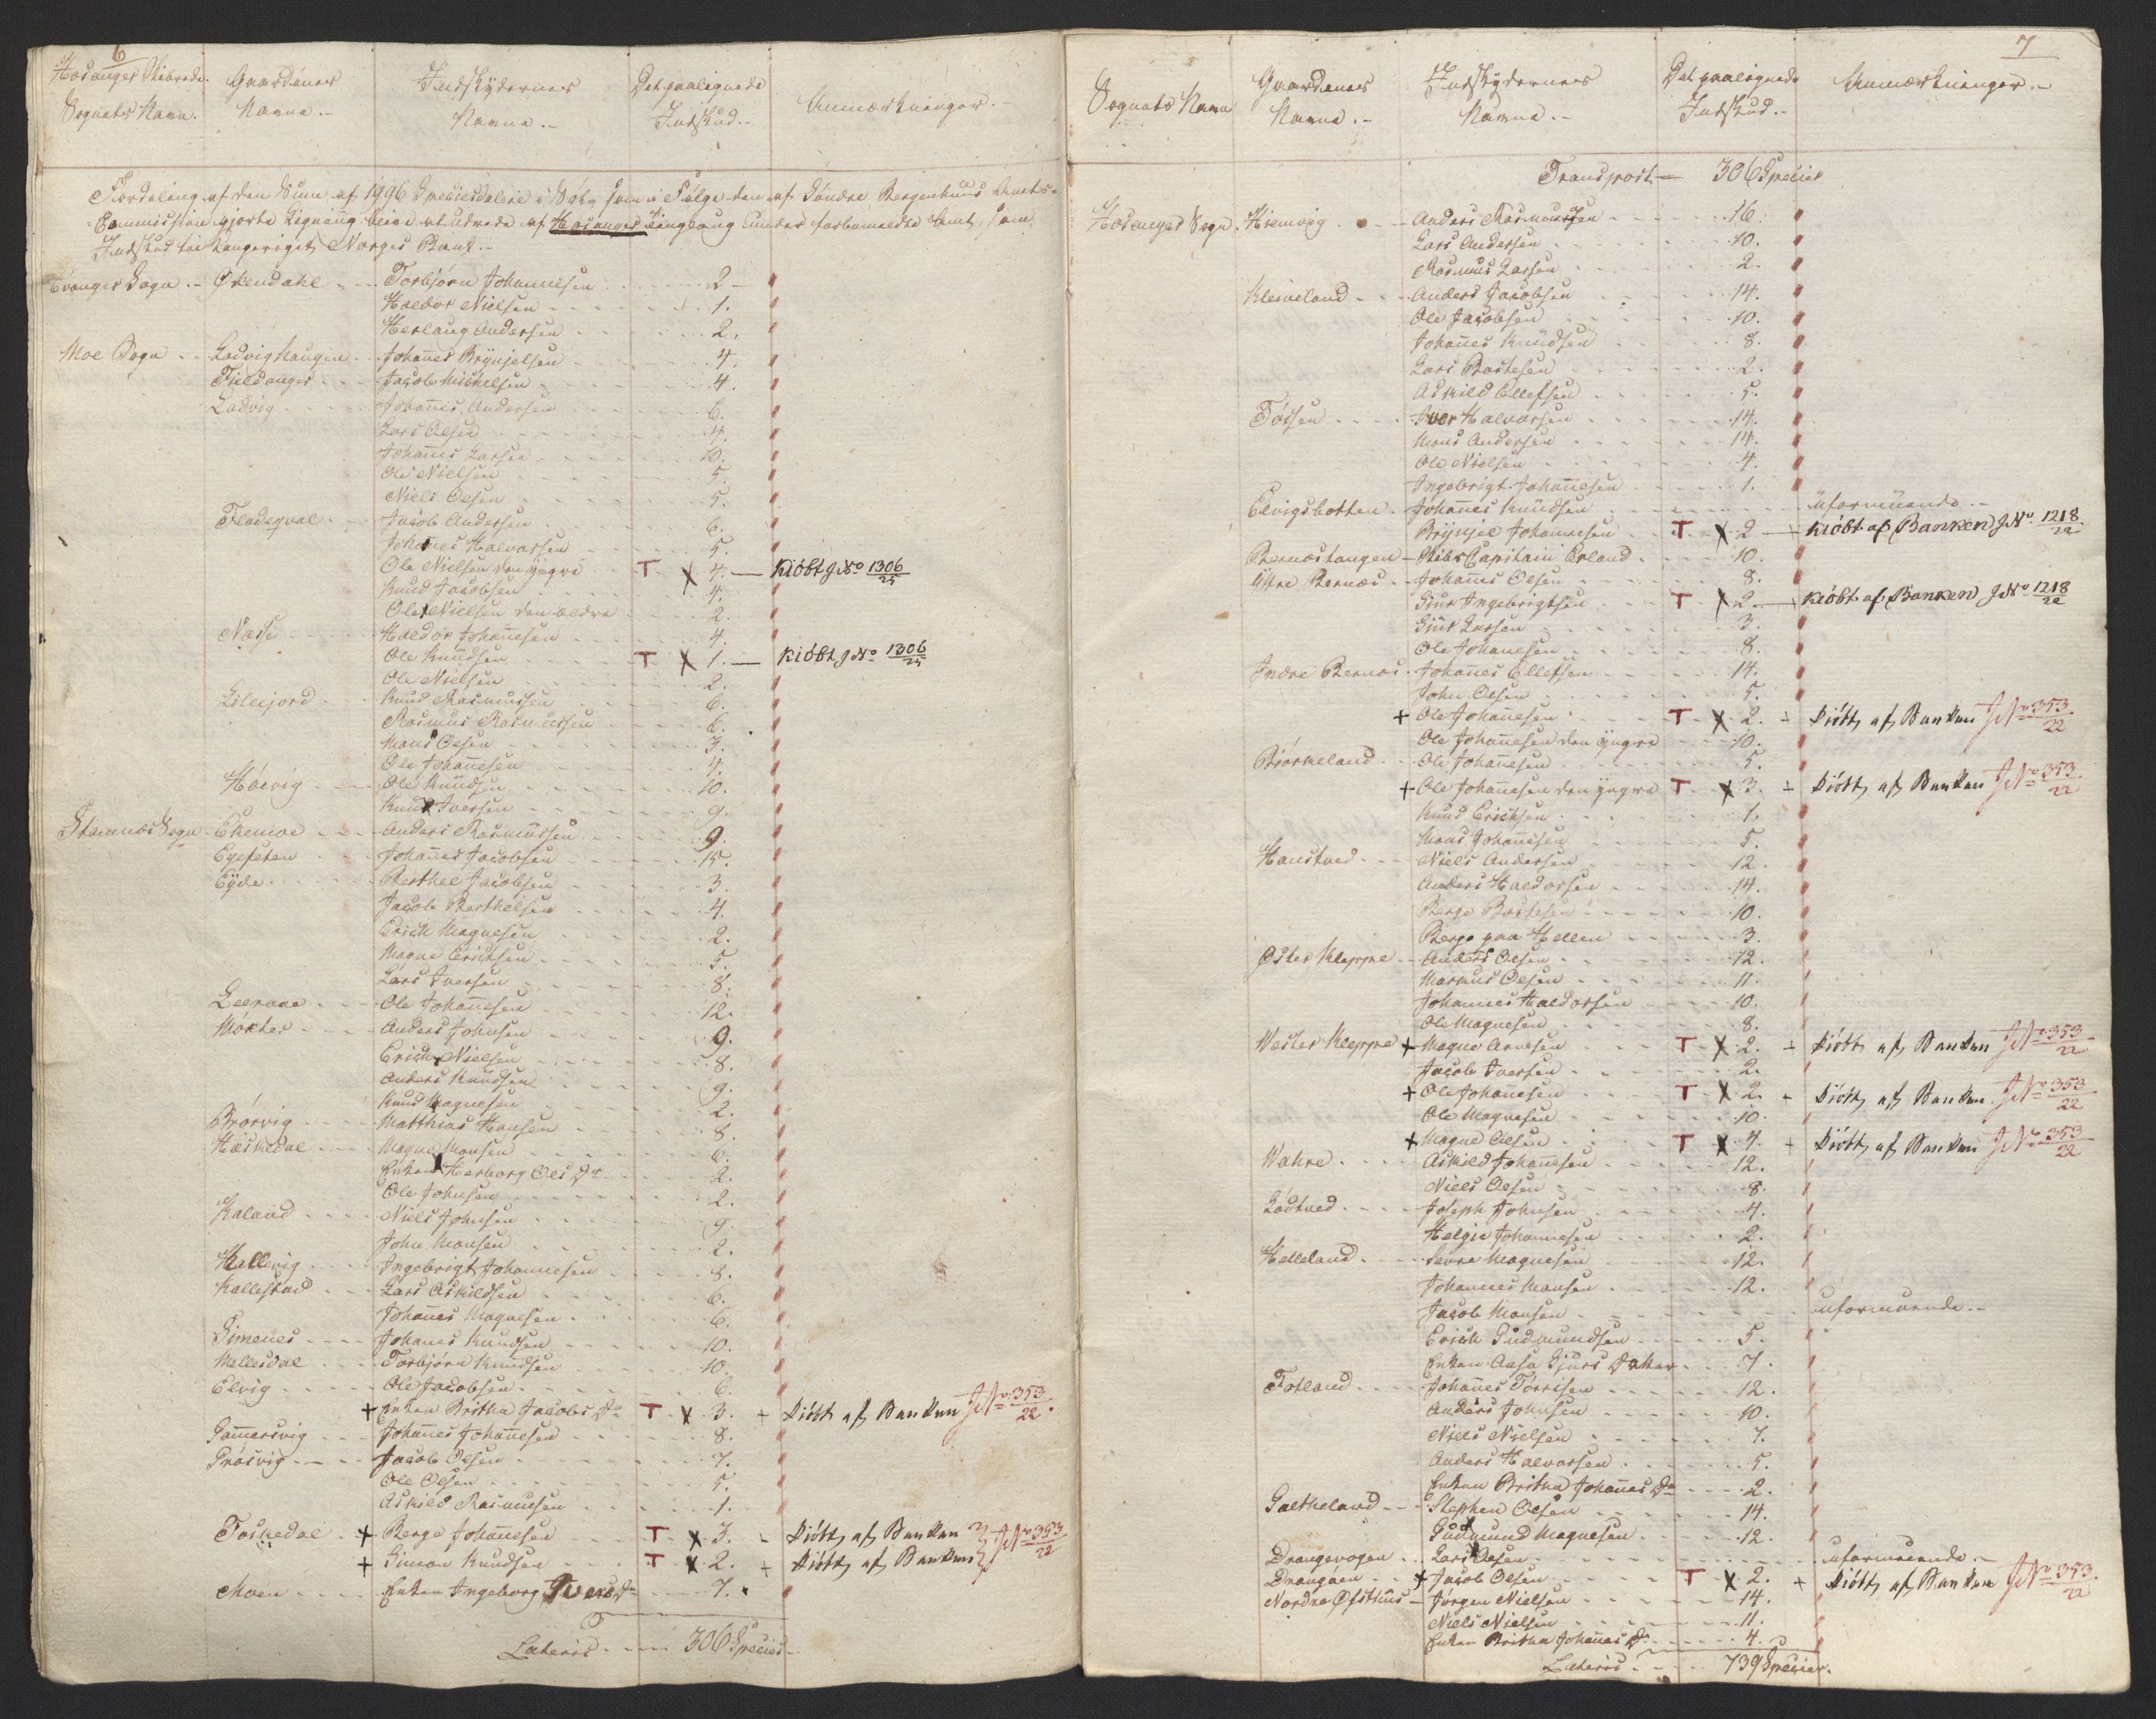 6
Hosanger Skibrede.
Sognets Navn. Gaardenes Navne.- Indskydernes Navne.- Det paalignede Indskud.- Anmærkninger.-
Fordeling af den Sum af 1996 Speciesdaler i Sølv som i Følge den af Søndre Bergenhuus Amts-
Commission gjorte Ligning bliver at udrede af Hosanger Tinglaug under forbemeldte Amt, som
Indskud til Kongeriget Norges Bank.-
Evanger Sogn.- Øxendahl Torbjørn Johannesen 2-
Haldor Nielsen 1.
Herlaug Andersen 2.
Moe Sogn Lodvighaugen Johannes Brynjelsen 4.
Fjeldanger Jacob Mickelsen 4.
Lodvig Johannes Andersen 6.
Lars Olsen 4.
Johannes Larsen 10.
Ole Nielsen 5.
Niels Olsen 5.
Fladeqval Jacob Andersen 6.
Johannes Halvorsen 5.
Ole Nielsen den yngre T X 4.— Kiöbt J No 1306/25
Knud Jacobsen 4.
Ole Nielsen den ældre 2.
Nasse Haldor Johannesen 4.
Ole Knudsen T X 1.— Kiöbt J No 1306/25
Ole Nielsen 2.
Lilejord Knud Rasmussen 6.
Rasmus Rasmussen 6.
Mons Olsen 3.
Ole Johannesen 4.
Høevig Ole Knudsen 10.
Knud Iversen 9.
Stamnæs Sogn Ekemoe Anders Rasmussen 9.
Egesæten Johannes Jacobsen 15.
Eyde Berthel Jacobsen 3.
Jacob Berthelsen 4.
Erick Magnesen 2.
Magne Ericksen 5.
Lars Iversen 8.
Leeraae Ole Johannesen 12.
Møster Anders Johnsen 9.
Erick Nielsen 8.
Anders Knudsen 9.
Knud Magnesen 2.
Brørvig Matthias Hansen 8.
Hæskedal Magne Monsen 6.
Enken Herborg Ols Dr 2.
Ole Johnsen 2.
Kaland Niels Johnsen 9.
John Monsen 2.
Hallevig Ingebrigt Johannesen 8.
Kallestad Lars Askildsen 6.
Johannes Magnesen 6.
Simenes Johannes Knudsen 10.
Mellesdal Torbjørn Knudsen 10.
Elvig Ole Jacobsen 6.
+ Enken Britha Jacobs Dr T X 3. + Kiöbt af Banken J No 353/22
Gamersvig Johannes Johannesen 8.
Prøsvig Jacob Olsen 7.
Ole Olsen 5.
Askild Rasmusen 1.
Foskedal + Berge Johannesen T X 3. - Kiöbt af Banken } J No 353/22
+ Simon Knudsen T X 2. + Kiöbt af Banken
Moen Enken Ingeborg Ivers Dr 7.
Lateris 306 Species
7
Sognets Navn Gaardenes Navne.- Indskydernes Navne.- Det paalignede Indskud.- Anmærkninger.-
Transport— 306 Species
Hosanger Sogn. Hiemvig Anders Rasmussen 16.
Lars Andersen 10.
Rasmus Larsen 2.
Kleiveland Anders Jacobsen 14.
Ole Jacobsen 10.
Johannes Knudsen 8.
Lars Bortesen 2.
Askild Ellefsen 5.
Tøssen Iver Halvorsen 14.
Mons Andersen 14.
Ole Nielsen 4.
Ingebrigt Johannesen 1.
Elvigsbotten Johannes Knudsen uformuende.-
Brynjel Johannesen T X 2— Kiöbt af Banken J No 1218/22
Bernæstangen Skibs Capitain Erland 10.
Yttre Bernæs Johannes Olsen 8.
Siur Ingebrigtsen T X 2— Kiöbt af Banken J No 1218/22
Siur Larsen 3.
Ole Johannesen 8.
Indre Bernæs Johannes Ellefsen 14.
John Olsen 5.
+ Ole Johannesen T X 2. + Kiöbt af Banken J No 353/22
Ole Johannesen den yngre 10.
Biørkeland Ole Johannesen 5.
+ Ole Johannesen den yngre T X 3. + Kiöbt af Banken J No 353/22
Knud Ericksen 1.
Mons Johannesen 5.
Haustved Niels Andersen 12.
Anders Haldorsen 14.
Berge Bortesen 10.
Berge paa Hellen 3.
Øster Kleppe Anders Olsen 12.
Markus Olsen 11.
Johannes Haldorsen 10.
Ole Magnesen 8.
Wester Kleppe + Magne Arnesen T X 2. + Kiöbt af Banken J No 353/22
Jacob Iversen 2.
+ Ole Johannesen T X 2. + Kiöbt af Banken J No 353/22
Ole Magnesen 10.
+ Magne Olsen T X 4. + Kiöbt af Banken J No 353/22
Wahre Askild Johannesen 12.
Niels Olsen 8.
Lødtved Joseph Johnsen 4.
Helgie Johannesen 2.
Helleland Sevre Magnesen 12.
Johannes Monsen 12.
Jacob Monsen uformuende.-
Erick Gudmundsen 5.
Enken Aasa Sjurs Datter 7.
Fotland Johannes Torrisen 12.
Anders Johnsen 10.
Niels Nielsen 7.
Anders Halvorsen 5.
Enken Britha Johannes Dr 2.
Galtheland Stephen Olsen 14.
Gudmund Magnesen 12.
Drangevogen Lars Olsen uformuende.-
Drangøen + Jacob Olsen T X 2. + Kiöbt af Banken J No 353/22
Nordre Øfsthus Jørgen Nielsen 14.
Niels Nielsen 11.
Enken Britha Johannes Dr 4.
Lateris 739 Species.